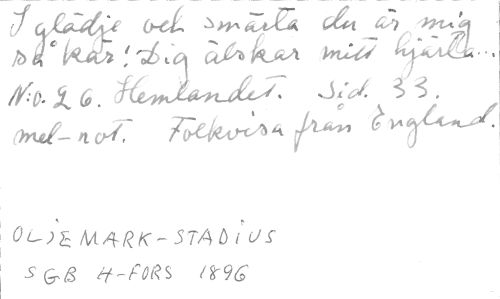 I glädje och smärta du är mig
så kär! Dig älskar mitt hjärta...
N:o. 26. Hemlandet. Sid. 33.
mel-not. Folkvisa från England.
OLJEMARK-STADIUS
SGB H-FORS 1896